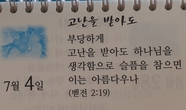 고난을 받아도
부당하게
고난을 받아도 하나님을
생각함으로 슬픔을 참으면
이는 아름다우나
(벧전 2:19)
7월 4일